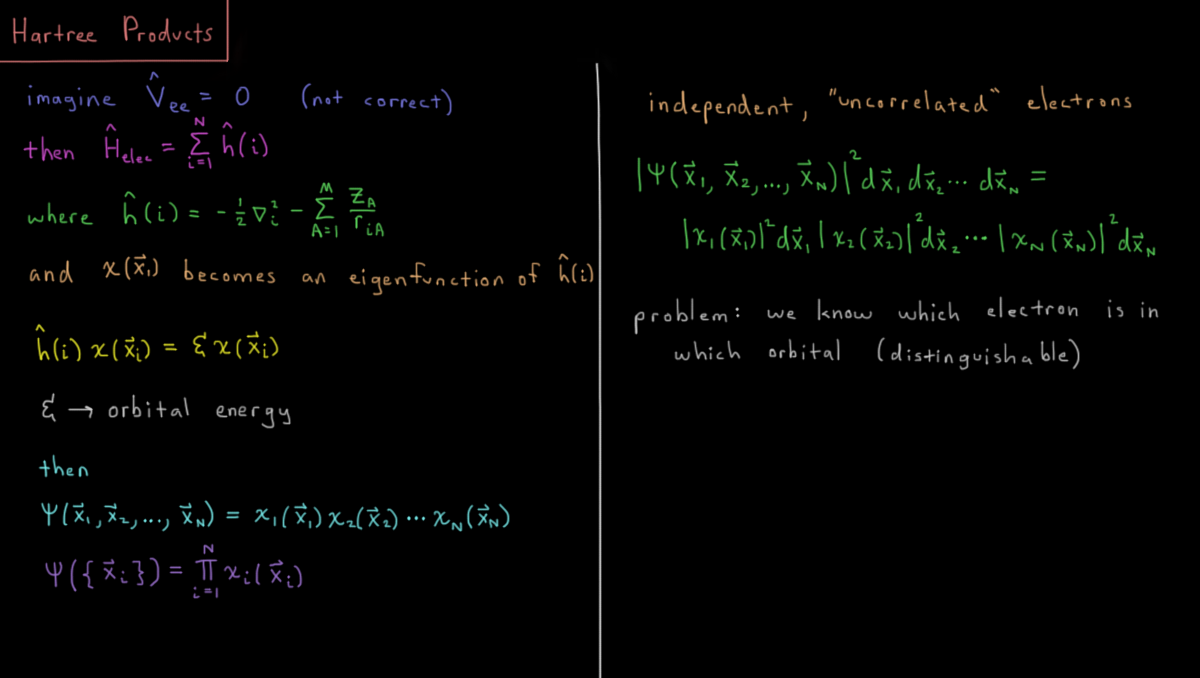 Hartree Products
imagine V̂ee = 0 (not correct)
then Ĥelec = Σ_{i=1}^{N} ĥ(i)
where ĥ(i) = -½∇ᵢ² - Σ_{A=1}^{M} Z_A / r_{iA}
and χ(x⃗₁) becomes an eigenfunction of ĥ(i)
ĥ(i) χ(x⃗ᵢ) = ε χ(x⃗ᵢ)
ε → orbital energy
then
Ψ(x⃗₁, x⃗₂, ..., x⃗_N) = χ₁(x⃗₁) χ₂(x⃗₂) ⋯ χ_N(x⃗_N)
Ψ({x⃗ᵢ}) = Π_{i=1}^{N} χᵢ(x⃗ᵢ)
independent, "uncorrelated" electrons
|Ψ(x⃗₁, x⃗₂, ..., x⃗_N)|² dx⃗₁ dx⃗₂ ⋯ dx⃗_N =
|χ₁(x⃗₁)|² dx⃗₁ |χ₂(x⃗₂)|² dx⃗₂ ⋯ |χ_N(x⃗_N)|² dx⃗_N
problem: we know which electron is in
which orbital (distinguishable)